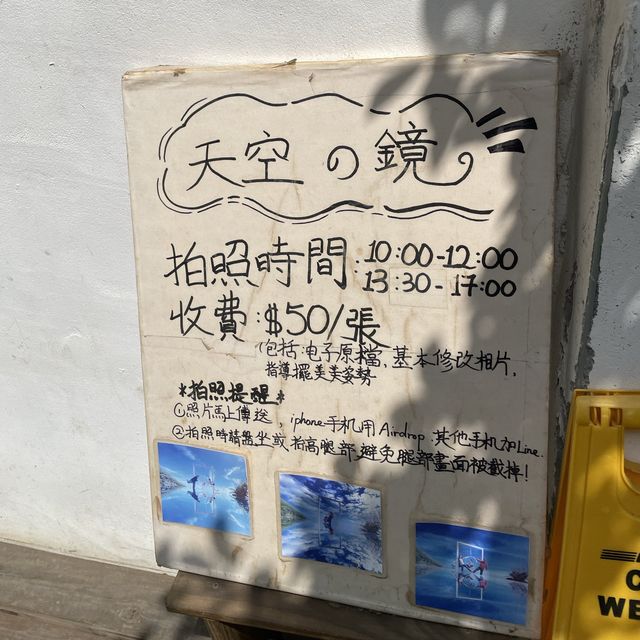 天空の鏡
拍照時間:10:00-12:00
13:30-17:00
收費:$50/張
(包括:电子原檔,基本修改相片,
指導擺美美姿勢
*拍照提醒*
①照片馬上傳送,iphone手机用Airdrop.其他手机加Line.
②拍照時請盤坐或抬高腿部,避免腿部畫面被截掉!